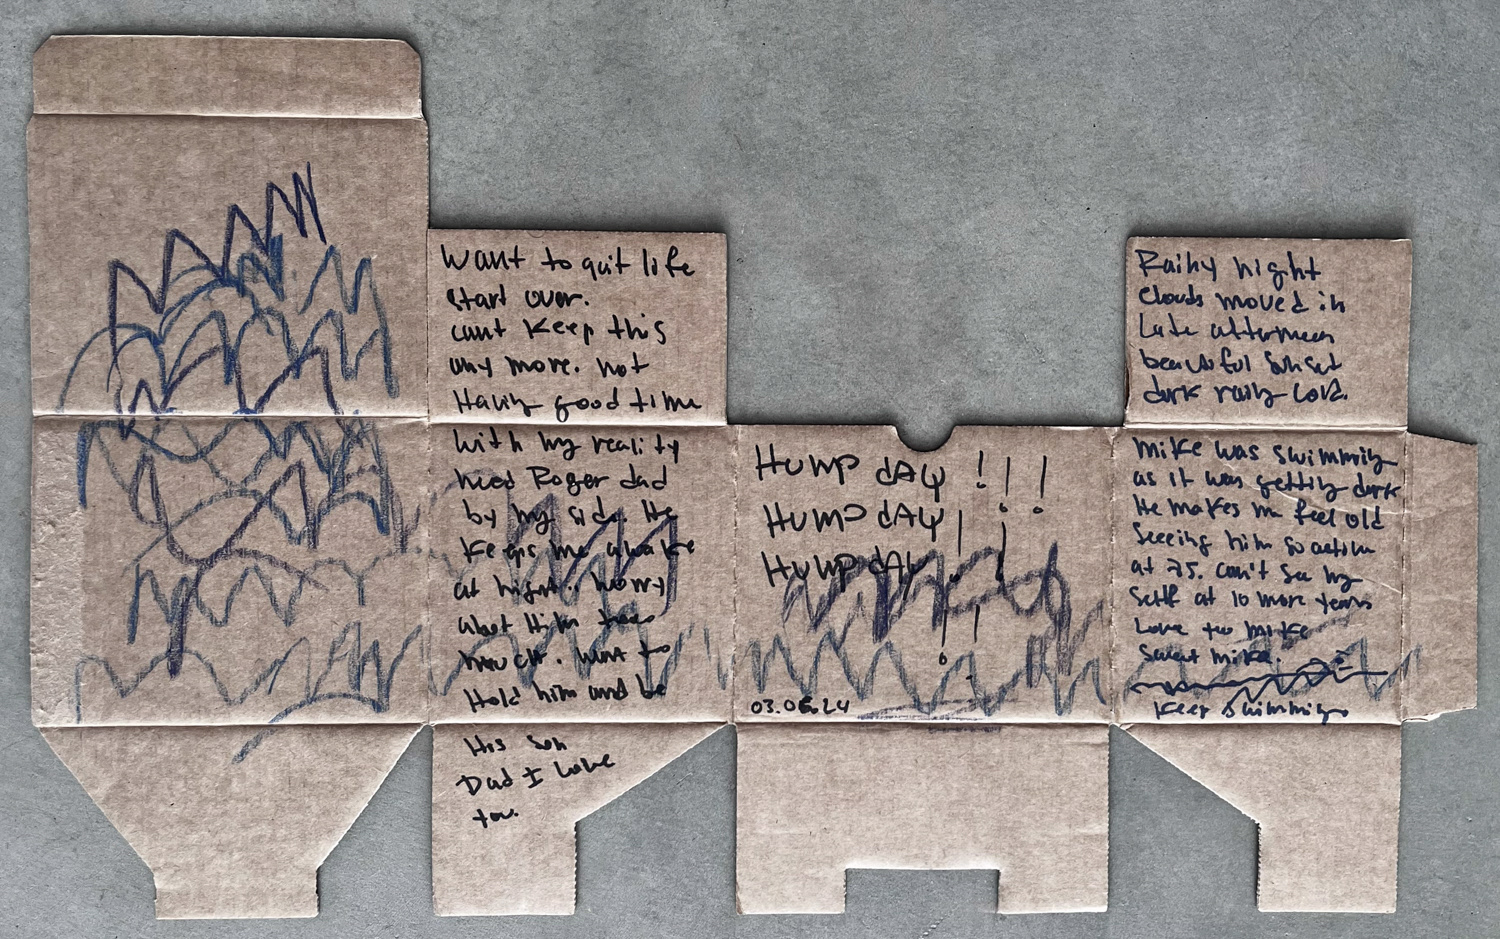 Want to quit life
start over.
cant keep this
any more. not
Having good time
with my reality
need Roger dad
by my side. He
Keeps me awake
at night. worry
about Him
much. want to
Hold him and be
His son
Dad I love
you.
HUMP dAY !!!
HUMP dAY !!
HUMP dAY !!
03.06.24
Rainy night
clouds moved in
Late afternoon
beautiful sunset
dark rainy cold.
Mike was swimming
as it was getting dark
He makes me feel old
Seeing him so active
at 75. can't see my
self at 10 more years
Love you Mike
Sweet Mike.
Keep swimming